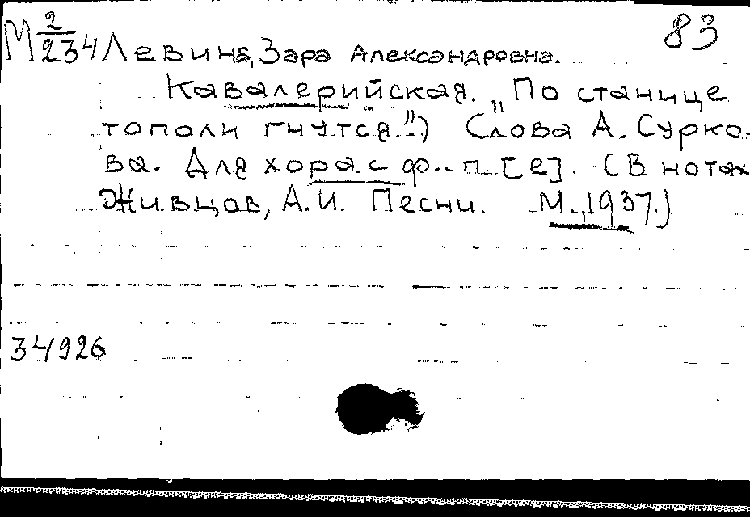 83
М 2/234 Левина, Зара Александровна.
Кавалерийская. „По станице
тополи гнутся.") Слова А. Сурко-
ва. Для хора с ф.-п. [e]. (В нотах
Живцов, А.И. Песни. М., 1937.)
34926